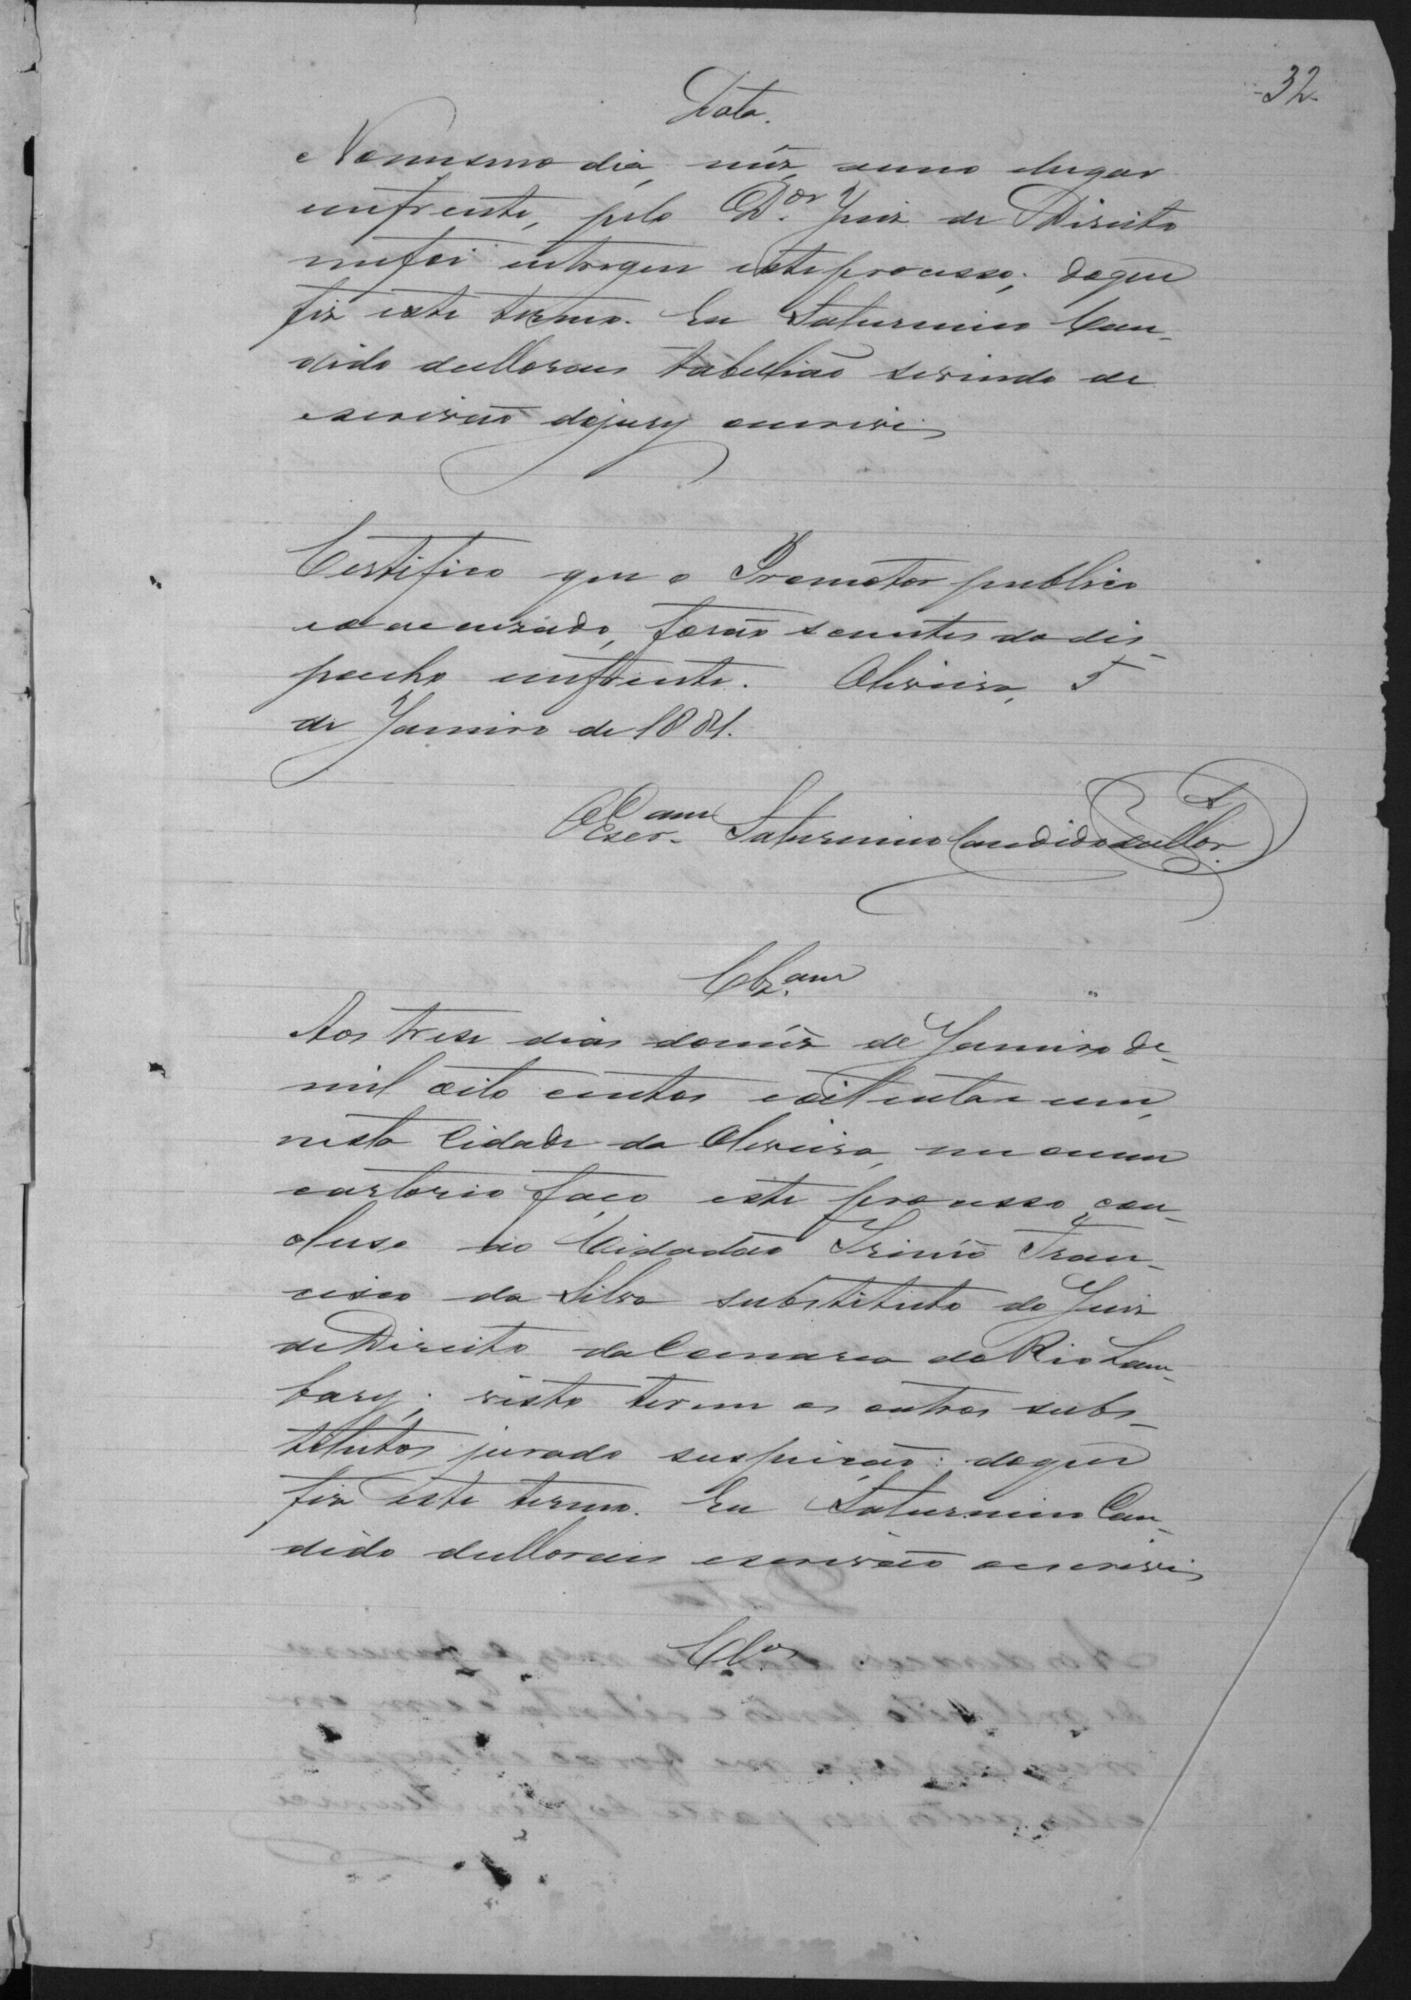 -32-
Data.
No mesmo dia, mêz, anno e lugar
emfrente, pelo Dor. Juiz de Direito
me foi entregue este processo; do que
fiz este termo. Eu Saturnino Can-
dido de Moraes tabellião servindo de
escrivão do jury o escrevi
Certifico que o Promotor publico
e o accuzado, forão scientes do dis-
pacho emfrente. Oliveira, 5
de Janeiro de 1881.
O Escram. Saturnino Candido de Mor.
Clzam.
Aos trese dias do mêz de Janeiro de
mil oito centos e oitenta e um,
nesta Cidade da Oliveira, em o meu
cartorio faço este processo con-
cluso ao Cidadão Irinêo Fran-
cisco da Silva substituto do Juiz
de Direito da Comarca do Rio Lam-
bary; visto terem os outros subs-
titutos jurado suspeição: do que
fiz este termo. Eu Saturnino Can-
dido de Moraes escrivão o escrevi
Clos.